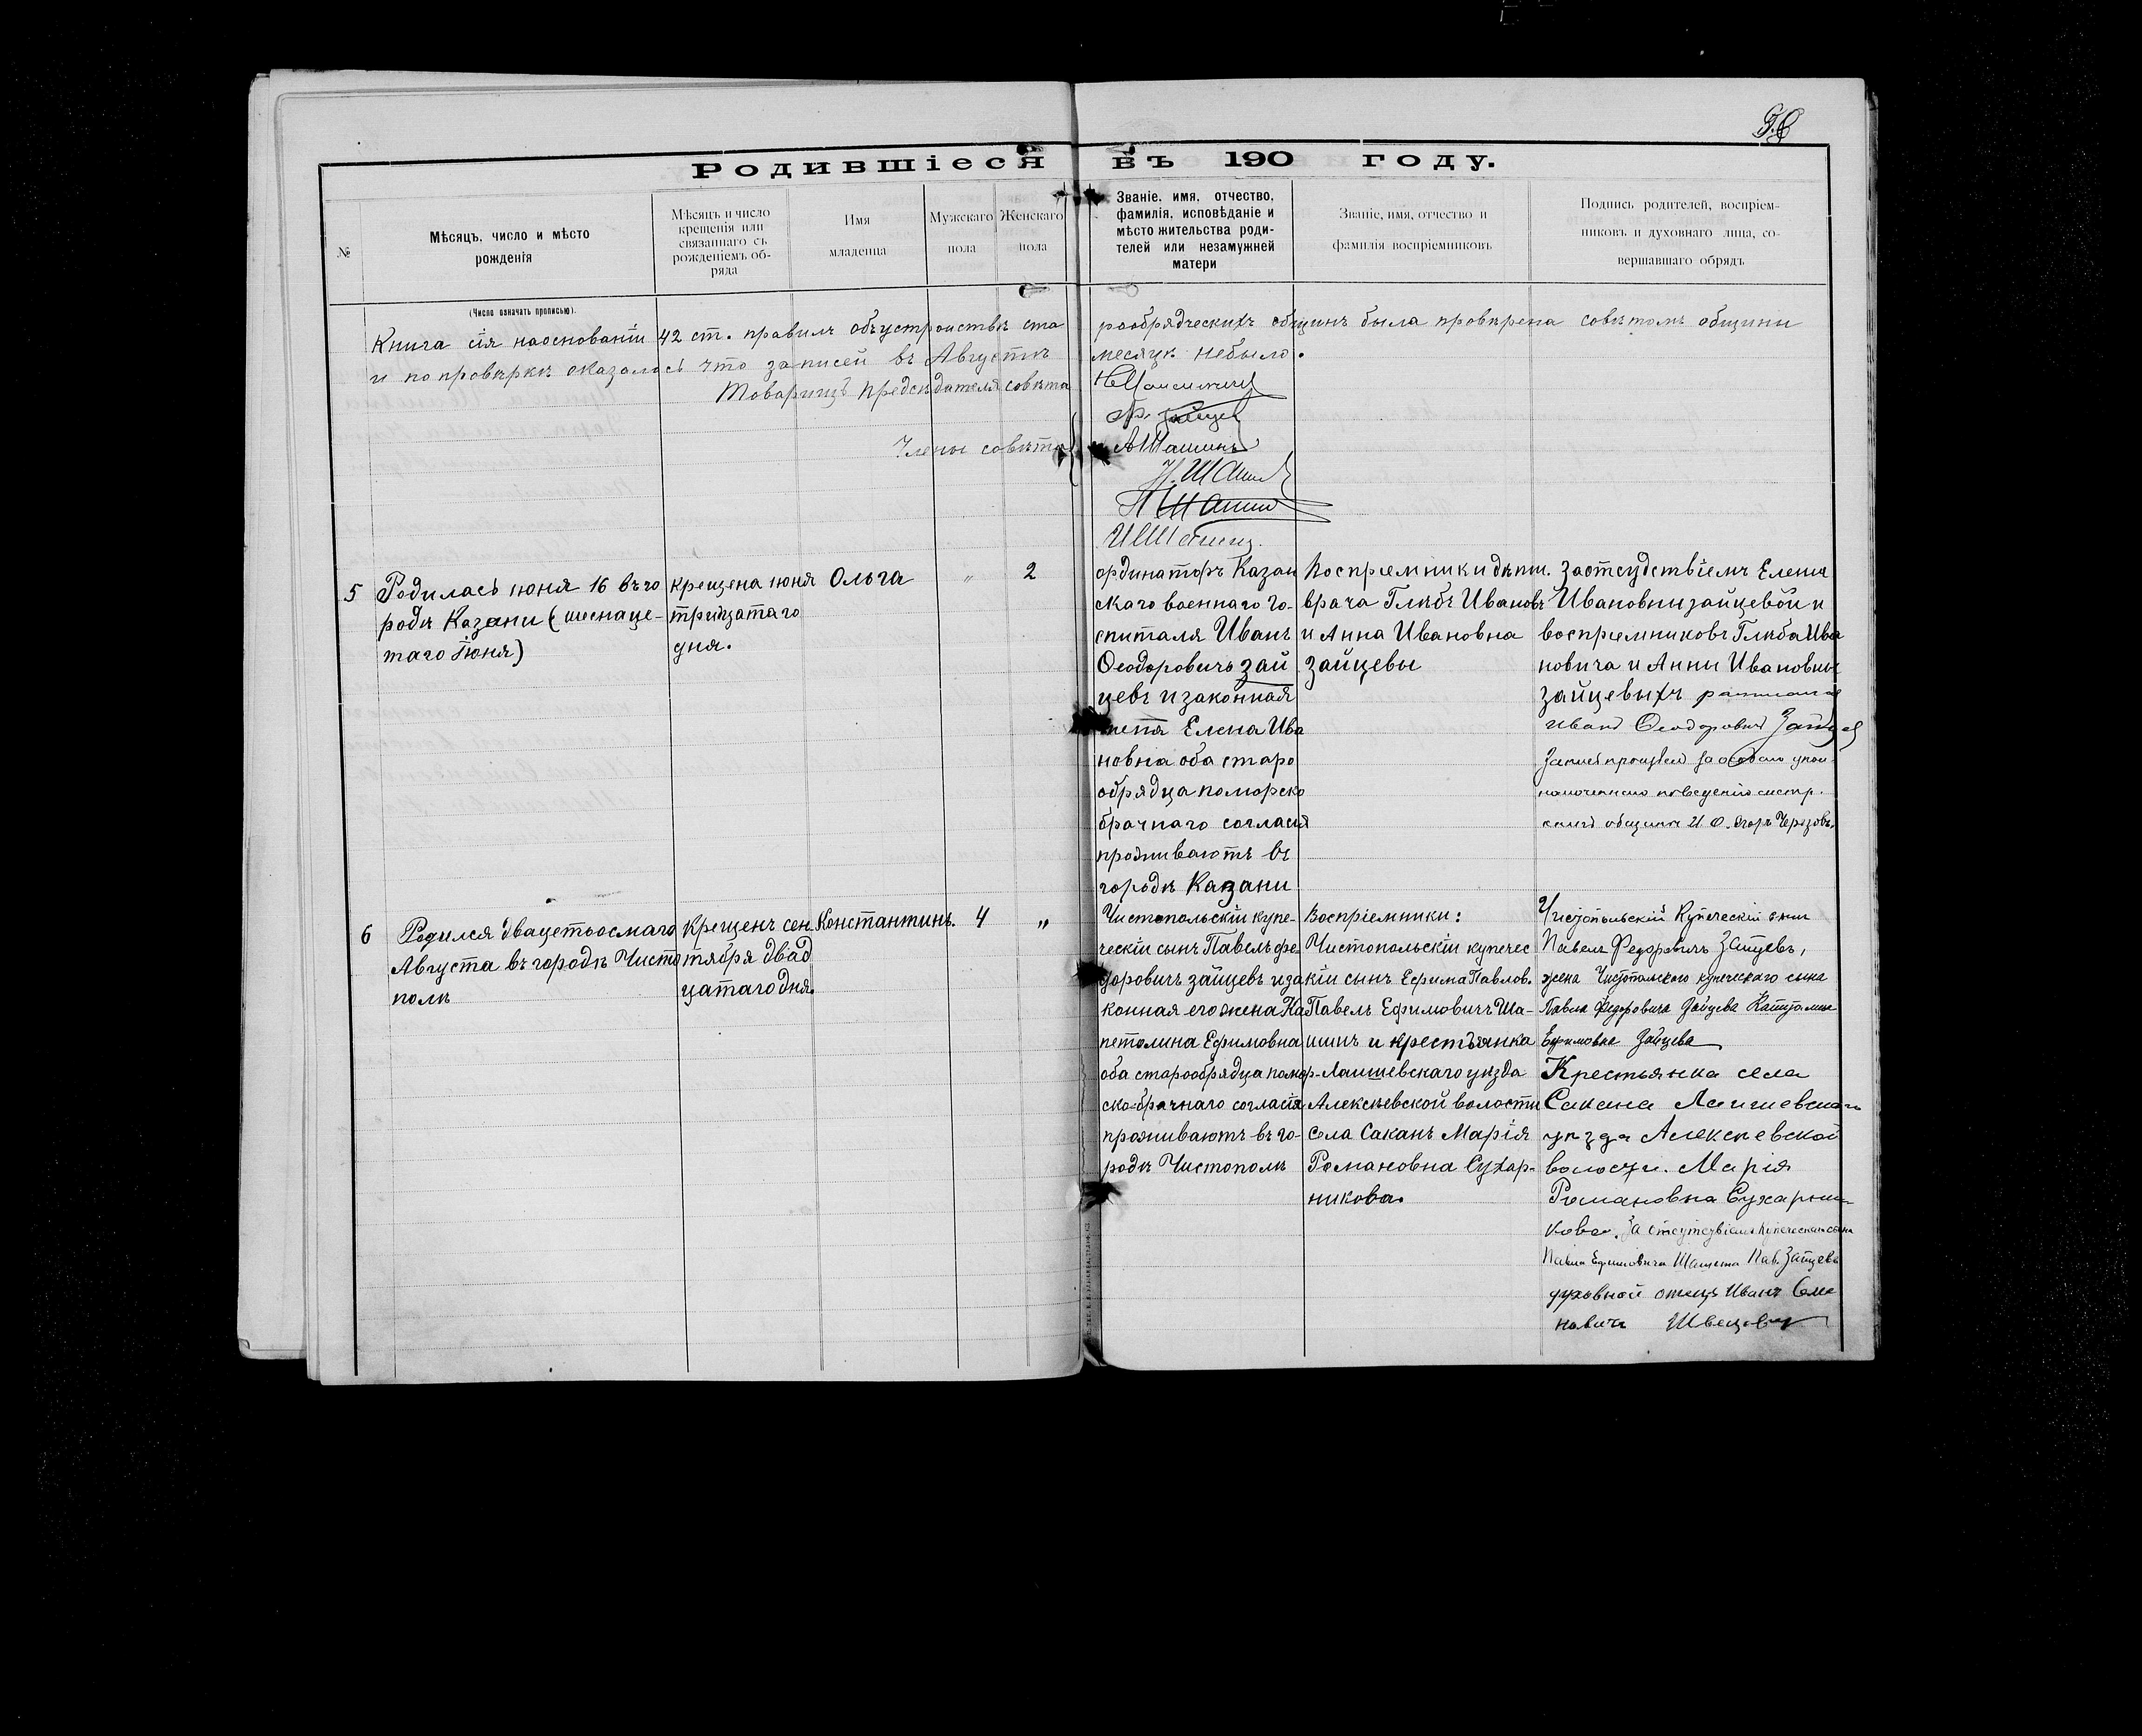 Родившіеся въ 190 году.
№
Мѣсяцъ, число и мѣсто
рожденія
Мѣсяцъ и число
крещенія или
связаннаго съ
рожденіемъ об-
ряда
Имя
младенца
Мужскаго
пола
Женскаго
пола
Званіе, имя, отчество,
фамилія, исповѣданіе и
мѣсто жительства роди-
телей или незамужней
матери
Званіе, имя, отчество и
фамилія воспріемниковъ
Подпись родителей, воспріем-
никовъ и духовнаго лица, со-
вершавшаго обрядъ
(Число означать прописью).
Книга сія наоснованіи 42 ст. правилъ объустроиствѣ ста рообрядческихъ общинъ была провѣрена совѣтомъ общины
и попровѣркѣ оказалось что записей въ Августѣ месяцѣ небыло.
Товарищъ предсѣдателя совѣта
Члены совѣта
Зайцев
А Шашинъ
Н. Шашин
И Шашинъ
5
Родилась іюня 16 въ го
родѣ Казани (шеснаце-
таго Іюня)
крещена іюня
тритцатаго
дня.
Ольга
„
2
ординаторъ Казан
скаго военнаго го-
спиталя Иванъ
Ѳеодоровичъ Зай
цевъ и законная
Елена Ива
новна оба старо
обрядца поморско
брачнаго согласія
проживаютъ въ
городѣ Казани
Воспріемники дѣти.
врача Глѣбъ Ивановъ
и Анна Ивановна
Зайцевы
Заотсудствіемъ Елены
Ивановны Зайцевой и
воспріемниковъ Глѣба Ива
новича и Анны Ивановны
Зайцевыхъ
Иванъ Ѳеодоровичъ Зайцев
общины И. Ѳ. Егоръ
6
Родился двацетьосмаго
Августа въ городѣ Чисто
полѣ
Крещенъ сен
тября двад
цатаго дня.
Константинъ.
4
„
Чистопольскій купе-
ческій сынъ Павелъ Фе
доровичъ Зайцевъ и за
конная его жена Ка
петолина Ефимовна
оба старообрядца помор-
ско-брачнаго согласія
проживаютъ въ го-
родѣ Чистополѣ
Воспріемники:
Чистопольскій купечес
кій сынъ Ефима Павлов.
Павелъ Ефимовичъ Ша-
шинъ и крестьянка
Лаишевскаго уѣзда
Алексѣевской волости
села Саканъ Марія
Романовна Сухар-
никова.
Чистопольскій Купеческій сынъ
Павелъ Федоровичъ Зайцевъ,
жена Чистопольскаго купеческаго сына
Павла Федоровича Зайцева Капитолина
Ефимовна Зайцева
Крестьянка села
Сакана Лаишевскаго
уѣзда Алексѣевской
волости. Марія
Романовна Сухарни-
кова. За отсутствіемъ Купеческаго сына
Павла Ефимовича Шашина Пав. Зайцевъ
духовной отецъ Иванъ Семе
новичъ Швецовъ